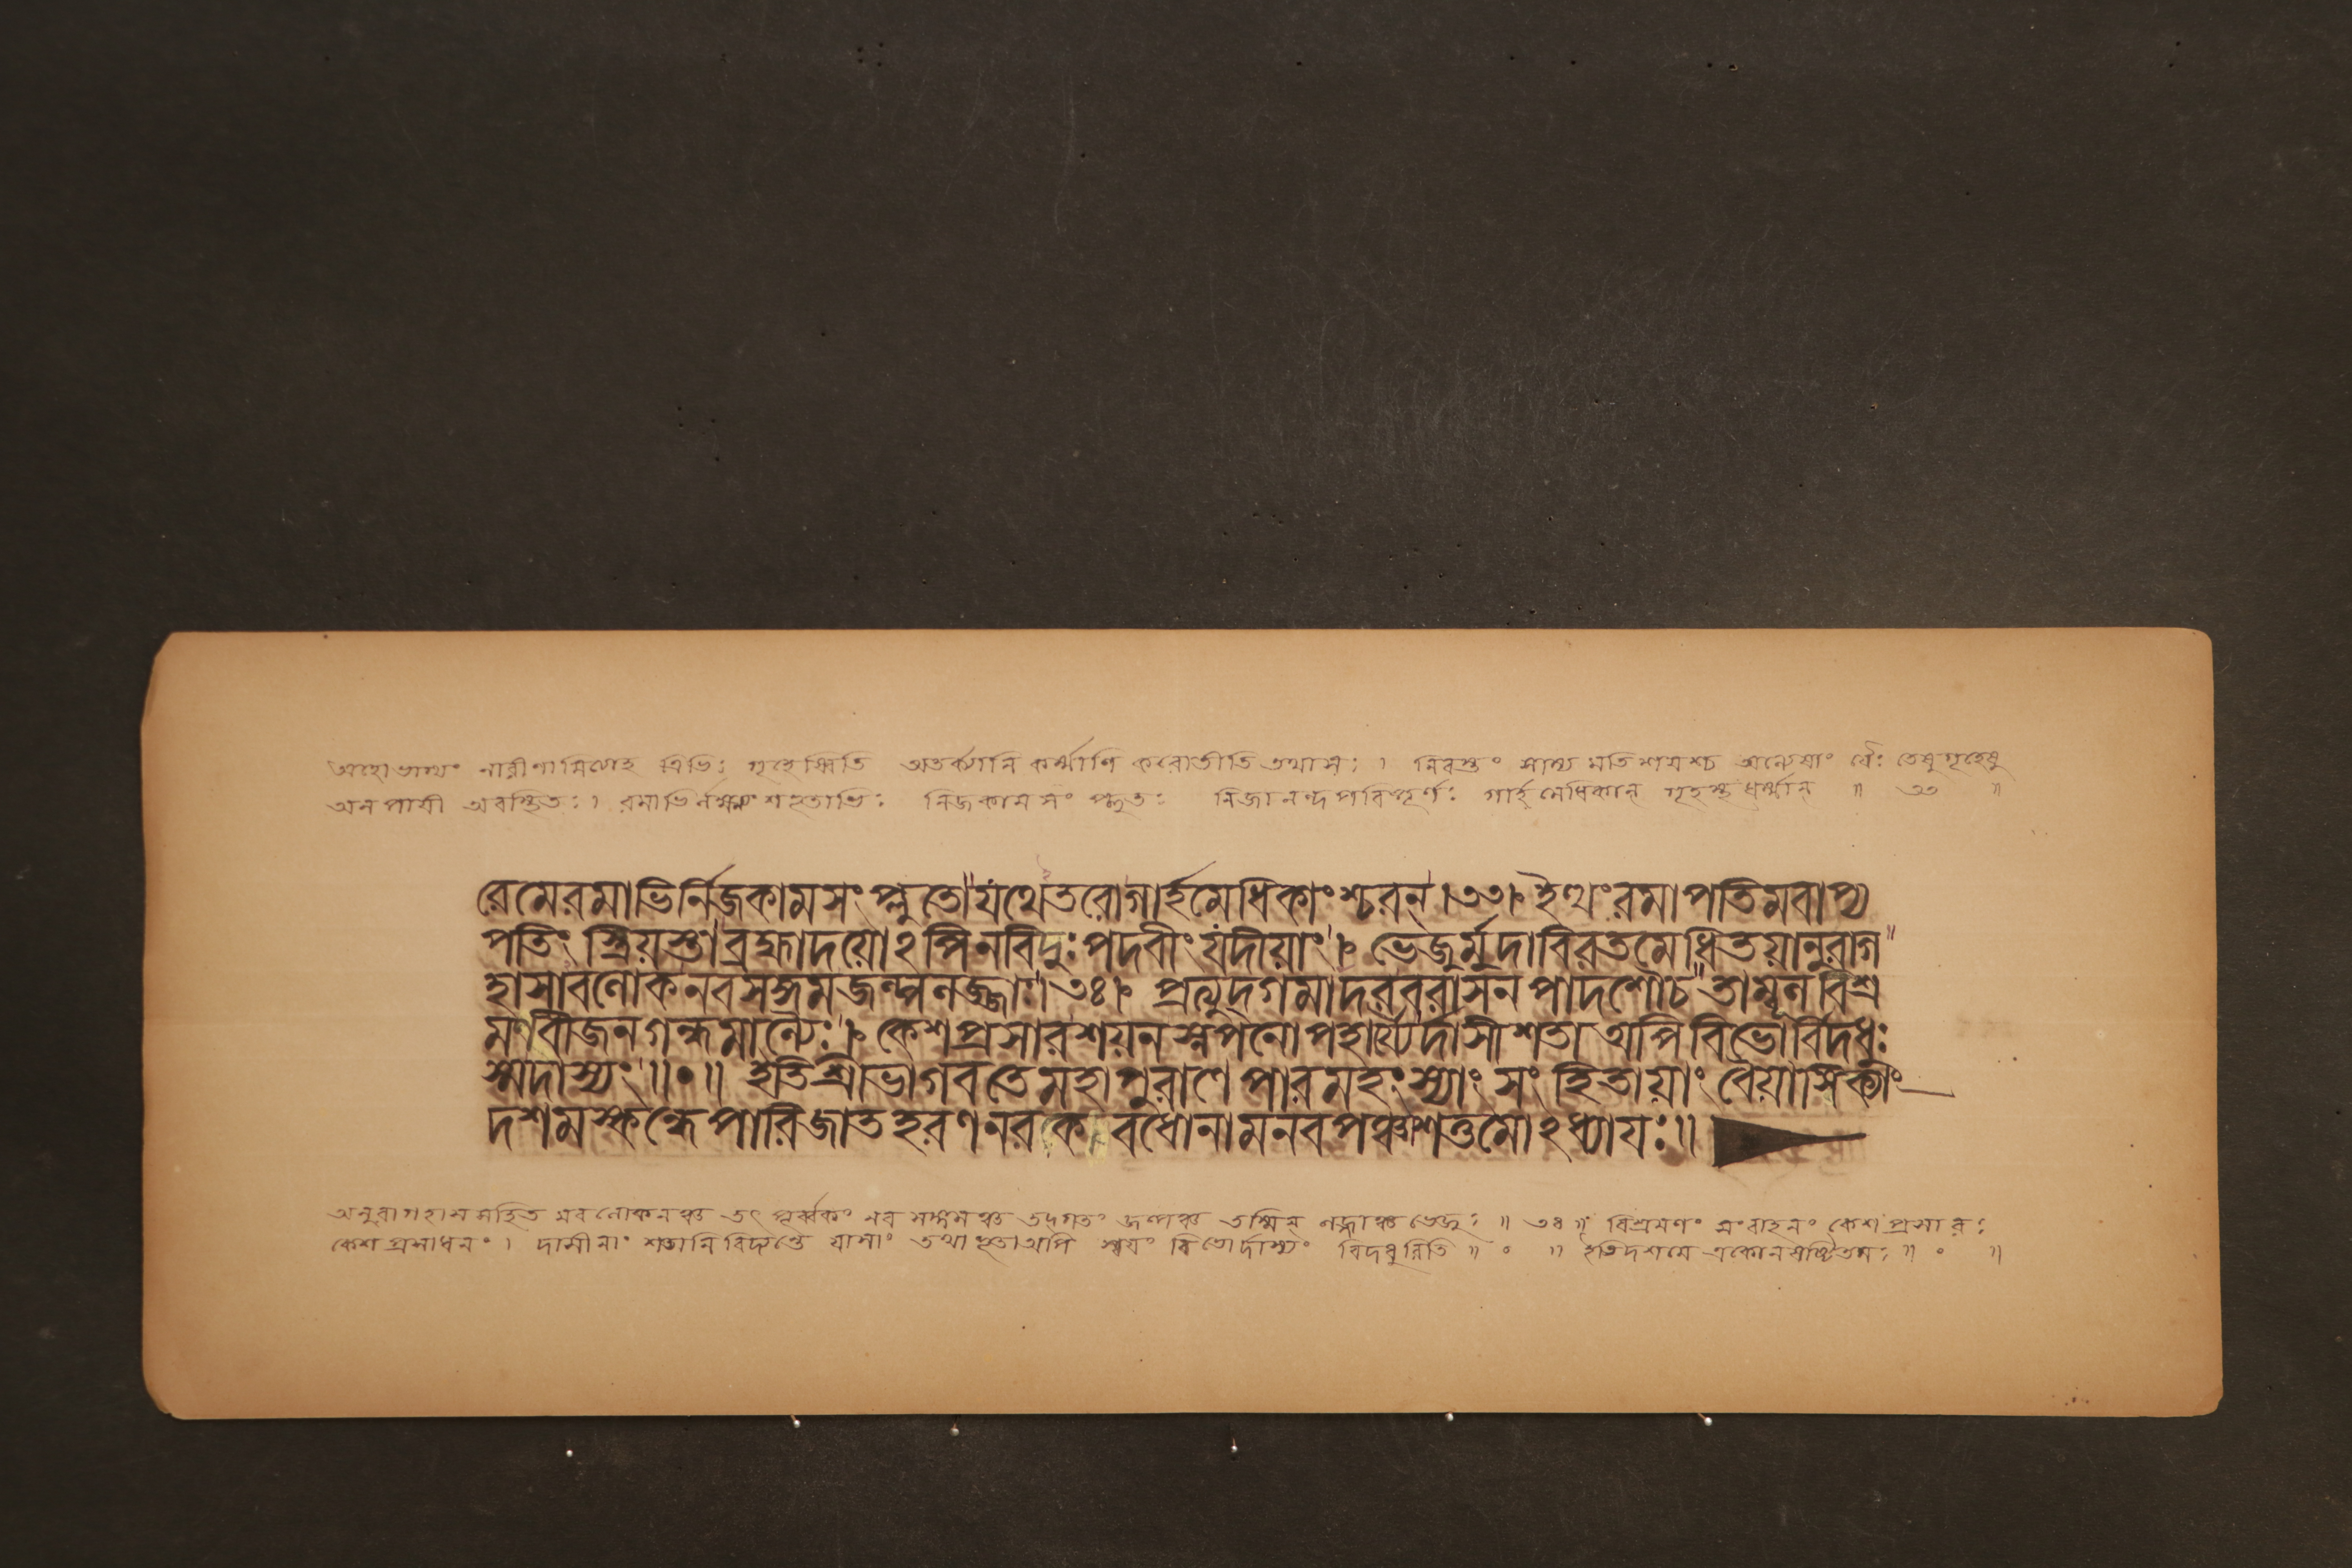 অহোভাগ্যং নারীণামিত্যাহ ত্রিভিঃ গৃহেষ্বিতি অতর্ক্যানি কর্ম্মাণি করোতীতি তথা সঃ । নিরস্তং সাম্য মতিশয়শ্চ অন্যেষাং যৈঃ তেষু গৃহেষু
অনপায়ী অবস্থিতঃ । রমাভির্লক্ষ্ম্যংশভূতাভিঃ নিজকাম সং প্লুতঃ নিজানন্দ পরিপূর্ণঃ গার্হমেধিকান্ গৃহস্থধর্ম্মান্ ॥ ৩৩ ॥
রেমেরমাভির্নিজকামসংপ্লুতো যথেতরোগার্হমেধিকাংশ্চরন্ ।৩৩। ইত্থংরমাপতিমবাপ্য
পতিং স্ত্রিয়স্তা ব্রহ্মাদয়োঽপিনবিদুঃপদবীং যদীয়াং । ভেজুর্মুদাবিরতমেধিতয়ানুরাগ
হাসাবলোকনবসঙ্গমজল্পলজ্জাঃ ।৩৪। প্রত্যুদ্গমাদরবরাসনপাদশৌচ তাম্বূলবিশ্র
মণবীজনগন্ধমাল্যৈঃ । কেশপ্রসারশয়নস্নপনোপহার্য্যৈর্দাসীশতা অপিবিভোর্বিদধুঃ
স্মদাস্যং ॥॰॥ ইতিশ্রীভাগবতেমহাপুরাণে পারমহংস্যাং সংহিতায়াং বৈয়াসিক্যাং
দশমস্কন্ধেপারিজাতহরণনরক বধোনামনবপঞ্চাশত্তমোঽধ্যায়ঃ॥
অনুরাগহাসসহিত মবলোকনঞ্চ তৎ পূর্ব্বকং নব সঙ্গমঞ্চ তদ্গতং জল্পঞ্চ তস্মিন্ লজ্জাঞ্চ ভেজুঃ ॥ ৩৪ ॥ বিশ্রমণং সংবাহনং কেশপ্রসারঃ
কেশপ্রসাধনং । দাসীনাং শতানি বিদ্যন্তে যাসাং তথাভূতাঅপি স্বয়ং বিভোর্দাস্যং বিদধুরিতি ॥ ॰ ॥ ইতিদশমে একোনষষ্টিতমঃ ॥ ॰ ॥